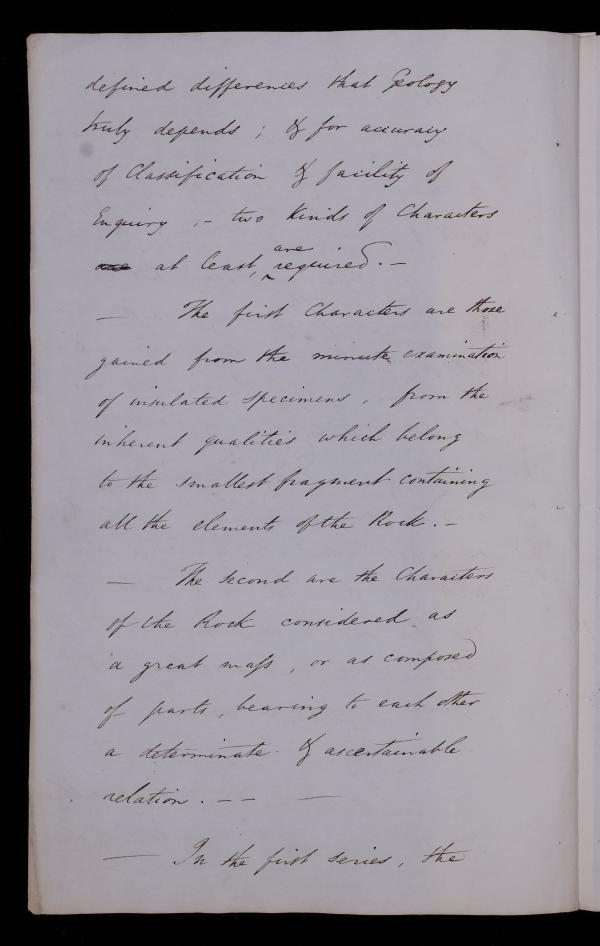 defined differences that Geology
truly depends ; & for accuracy
of Classification & facility of
Enquiry , – two Kinds of Characters
at least, are required. –
— The first Characters are those
gained from the minute examination
of insulated specimens , from the
inherent qualities which belong
to the smallest fragment containing
all the elements of the Rock . –
— The second are the Characters
of the Rock considered as
a great mass , or as composed
of parts , bearing to each other
a determinate & ascertainable
relation . – – —
— In the first series , the